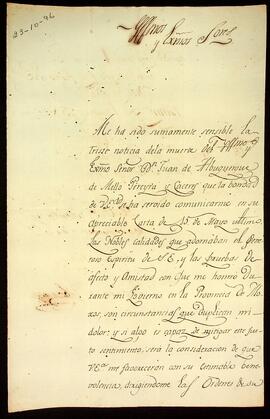 23-10-96
Yllmos
y Exmos Sores
Me ha sido sumamente sensible la
triste noticia dela muerte del Yllmo y
Exmo Señor Dn. Juan de Albuquerque
de Mello Pereyra y Caceres que la bondad
de V.Exa. ha servido comunicarme en su
Apreciable Carta de 15 de Mayo ultimo.
Las Nobles calidades que adornaban el Gene-
roso Espiritu de S.E., y las pruebas de
afecto y Amistad con que me honró Du-
rante mi Govierno en la Provincia de Mo-
xos, son circunstancias que Duplican mi
dolor: y si algo es capaz de mitigar este jus-
to sentimiento, será la consideracion de que
VExa. me favorecerán con su estimable bene-
volencia, dirigiendome las Ordenes de su